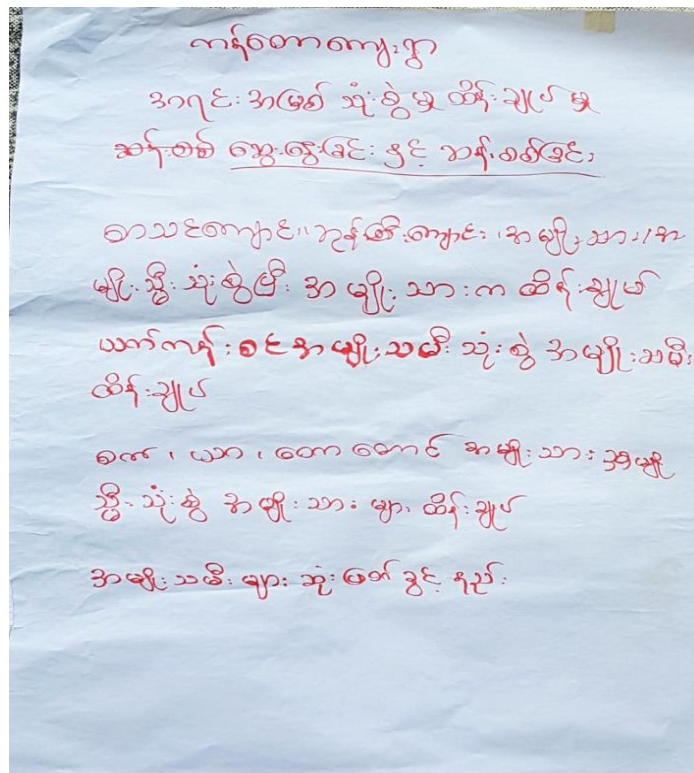 ကန်တောကျေးရွာ
အရင်းအမြစ် သုံးစွဲမှု ထိန်းချုပ်မှု
ဆန်းစစ် ဆွေးနွေးခြင်း နှင့် ဆန်းစစ်ခြင်း
စာသင်ကျောင်း၊ ဘုန်းကြီးကျောင်း၊ အမျိုးသား/အ
မျိုးသ္မီး သုံးစွဲပြီး အမျိုးသားက ထိန်းချုပ်
ယက်ကန်းစင် အမျိုးသမီး သုံးစွဲ အမျိုးသမီး
ထိန်းချုပ်
စက်၊ ယာ၊ တောတောင် အမျိုးသား အမျိုး
သ္မီး သုံးစွဲ အမျိုးသားများ ထိန်းချုပ်
အမျိုးသမီးများ ဆုံးဖြတ်ခွင့် နည်း